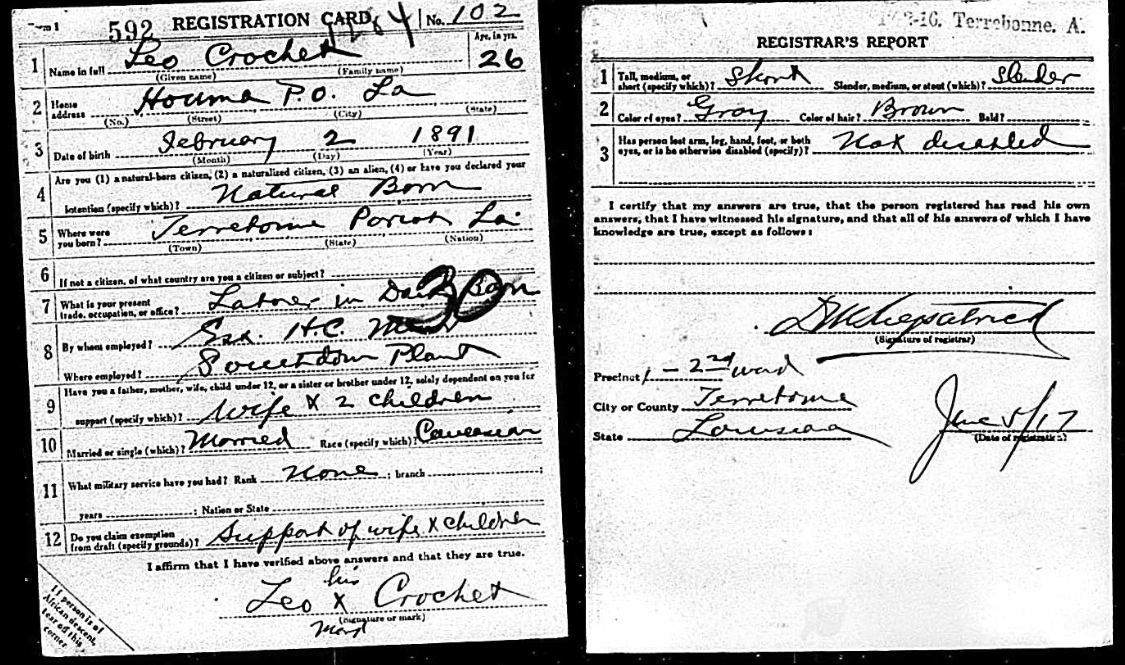 Form 1
592 REGISTRATION CARD No. 102
1 Leo Crochet Age, in yrs. 26
Name in full
(Given name) (Family name)
2 Home address Houma P.O. La
(No.) (Street) (City) (State)
3 Date of birth February 2 1891
(Month) (Day) (Year)
4 Are you (1) a natural-born citizen, (2) a naturalized citizen, (3) an alien, (4) or have you declared your
intention (specify which)? Natural Born
5 Where were you born? Terrebonne Parish La.
(Town) (State) (Nation)
6 If not a citizen, of what country are you a citizen or subject?
7 What is your present trade, occupation, or office? Laborer in
30
8 By whom employed? H.C.
Where employed? Southdown Plant
9 Have you a father, mother, wife, child under 12, or a sister or brother under 12, solely dependent on you for
support (specify which)? Wife x 2 children
10 Married or single (which)? Married Race (specify which)? Caucasian
11 What military service have you had? Rank None ; branch ;
years ; Nation or State
12 Do you claim exemption from draft (specify grounds)? Support of wife x children
I affirm that I have verified above answers and that they are true.
his
Leo x Crochet
(Signature or mark)
Mark
If person is of
African descent,
tear off this
corner.
Terrebonne, A.
REGISTRAR'S REPORT
1 Tall, medium, or short (specify which)? Short Slender, medium, or stout (which)? Slender
2 Color of eyes? Gray Color of hair? Brown Bald?
3 Has person lost arm, leg, hand, foot, or both
eyes, or is he otherwise disabled (specify)? Not disabled
I certify that my answers are true, that the person registered has read his own
answers, that I have witnessed his signature, and that all of his answers of which I have
knowledge are true, except as follows:
(Signature of registrar)
Precinct 1 - 2nd ward
City or County Terrebonne
State Louisiana
June 5/17
(Date of registration)